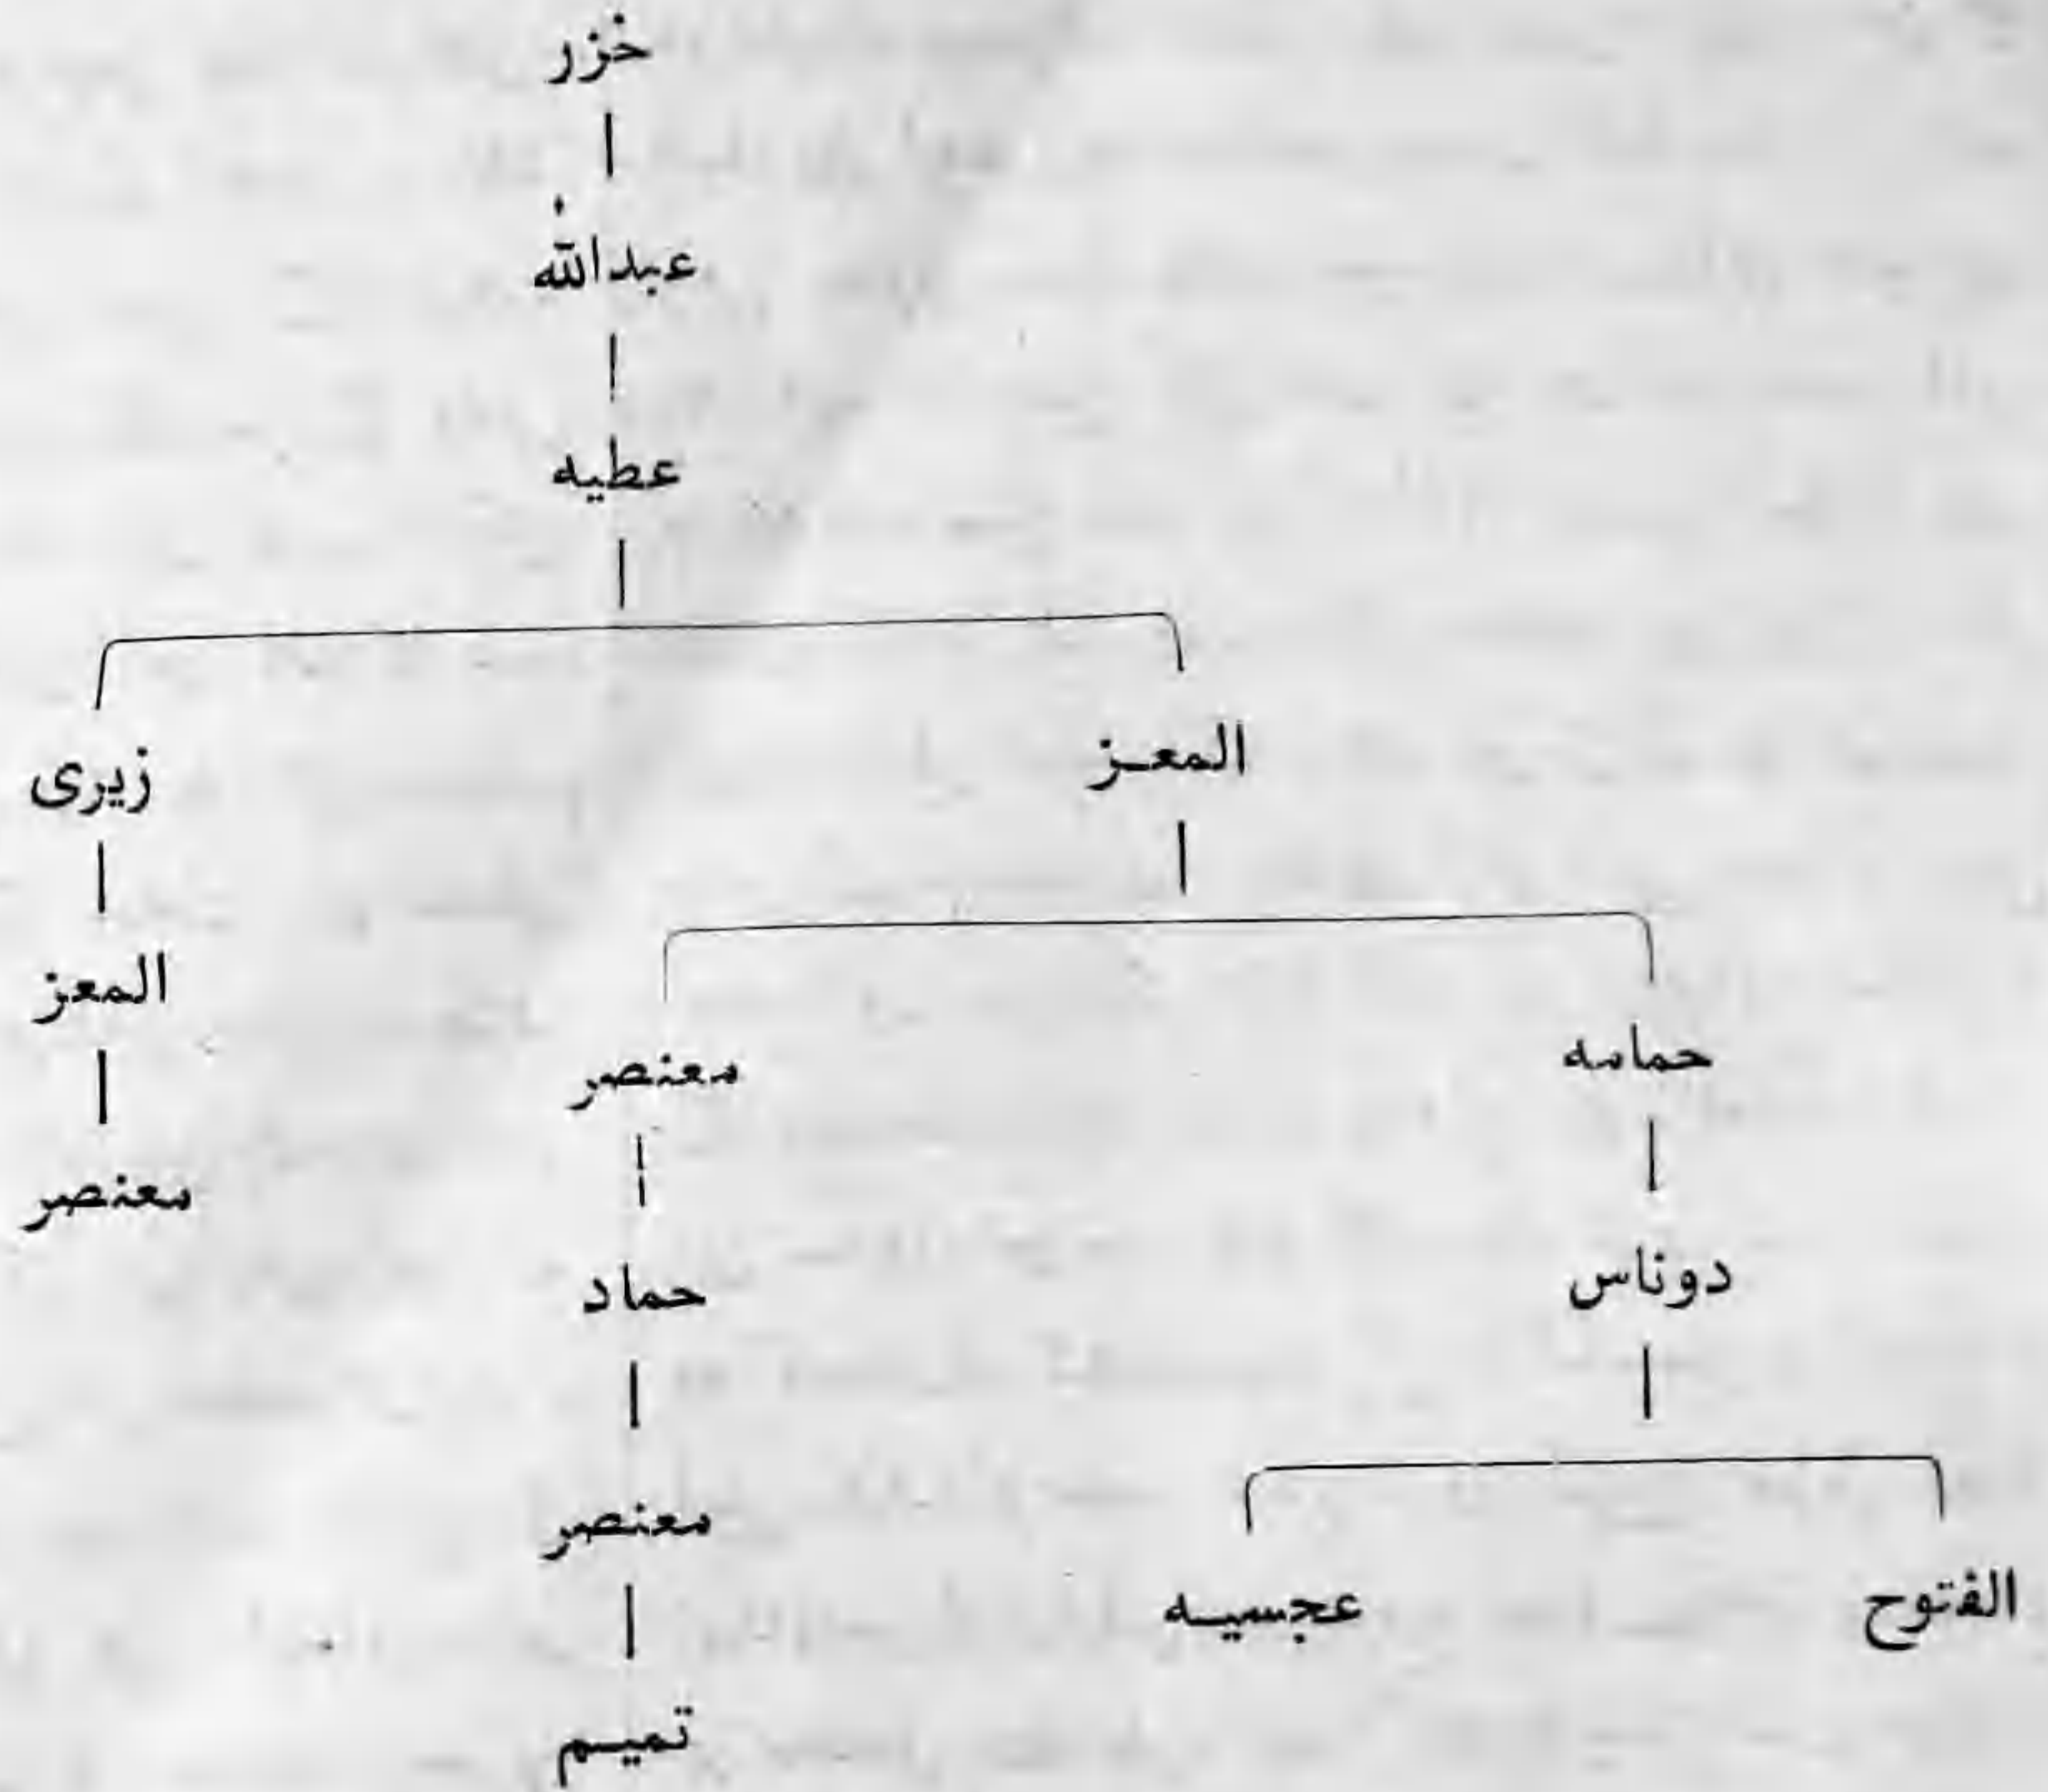 خزر
عبدالله
عطيه
المعز
زيرى
حمامه
معنصر
المعز
دوناس
حماد
معنصر
الفتوح
عجسيه
معنصر
تميم